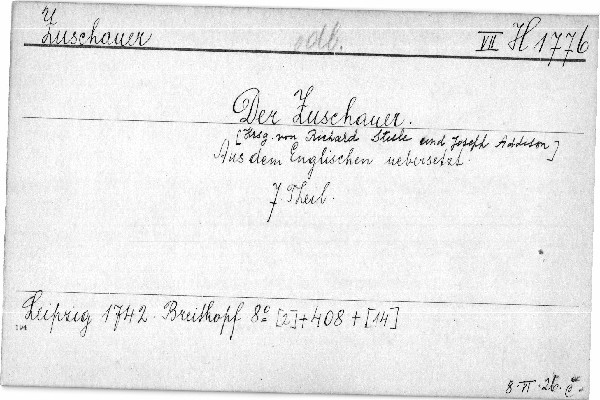 Zuschauer odb. VII H 1776
Der Zuschauer.
[Hrsg. von Richard Steele und Joseph Addison]
Aus dem Englischen uebersetzt.
7. Theil.
Leipzig 1742. Breitkopf 8° [2]+408+[14]
8. VI. 26.